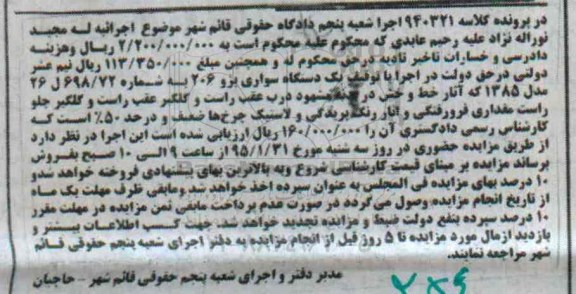 در پرونده کلاسه ۹۴۰۳۲۱ اجرا شعبه پنجم دادگاه حقوقی قائم شهر موضوع اجرائیه له مجید
نوراله نژاد علیه رحیم عابدی که محکوم علیه محکوم است به ۲/۲۰۰/۰۰۰/۰۰۰ ریال وهزینه
دادرسی و خسارات تاخیر تادیه درحق محکوم له و همچنین مبلغ ۱۱۳/۳۵۰/۰۰۰ ریال نیم عشر
دولتی درحق دولت در اجرا با توقیف یک دستگاه سواری پژو ۲۰۶ به شماره ۶۹۸/۷۲ ل ۲۶
مدل ۱۳۸۵ که آثار خط و خش در بدنه مشهود درب عقب راست و گلگیر عقب راست و گلگیر جلو
راست مقداری فرورفتگی و آثار رنگ پریدگی و لاستیک چرخ‌ها ضعیف و درحد ۵۰٪ است که
کارشناس رسمی دادگستری آن را ۱۶۰/۰۰۰/۰۰۰ ریال ارزیابی شده است این اجرا در نظر دارد
از طریق مزایده حضوری در روز سه شنبه مورخ ۹۵/۱/۳۱ از ساعت ۹ الی ۱۰ صبح بفروش
برساند مزایده بر مبنای قیمت کارشناسی شروع وبه بالاترین بهای پیشنهادی فروخته خواهد شدو
۱۰ درصد بهای مزایده فی المجلس به عنوان سپرده اخذ خواهد شد ومابقی ظرف مهلت یک ماه
از تاریخ انجام مزایده وصول می‌گردد در صورت عدم پرداخت مابقی ثمن مزایده در مهلت مقرر
۱۰ درصد سپرده بنفع دولت ضبط و مزایده تجدید خواهد شد. جهت کسب اطلاعات بیشتر و
بازدید ازمال مورد مزایده تا ۵ روز قبل از انجام مزایده به دفتر اجرای شعبه پنجم حقوقی قائم
شهر مراجعه نمایند.
مدیر دفتر و اجرای شعبه پنجم حقوقی قائم شهر - حاجیان